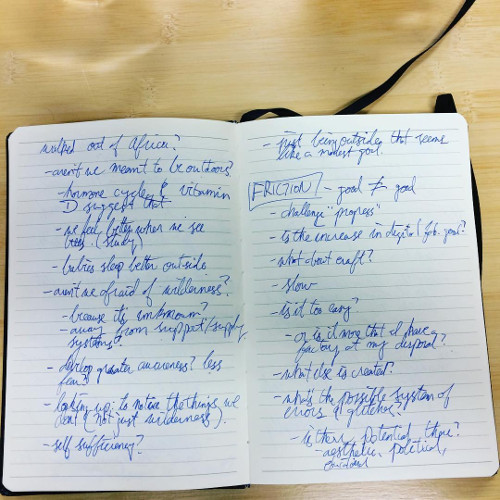 walked out of Africa?
- aren't we meant to be outdoors?
- hormone cycles & vitamin
D suggest that
- we feel better when we see
trees. (study)
- babies sleep better outside
- aren't we afraid of wilderness?
- because its unknown?
- away from support/supply
systems?
- develop greater awareness? less
fear?
- looking up: to notice the things we
don't (not just wilderness).
- self sufficiency?
- just being outside, that seems
like a modest goal.
FRICTION - good ≠ good
- challenge "progress"
- Is the increase in digital fab. good?
- what about craft?
- slow
- is it too easy?
- or is it more that I have a
factory at my disposal?
- what else is created?
- what's the possible system of
errors & glitches?
- is there potential there?
- aesthetic, political,